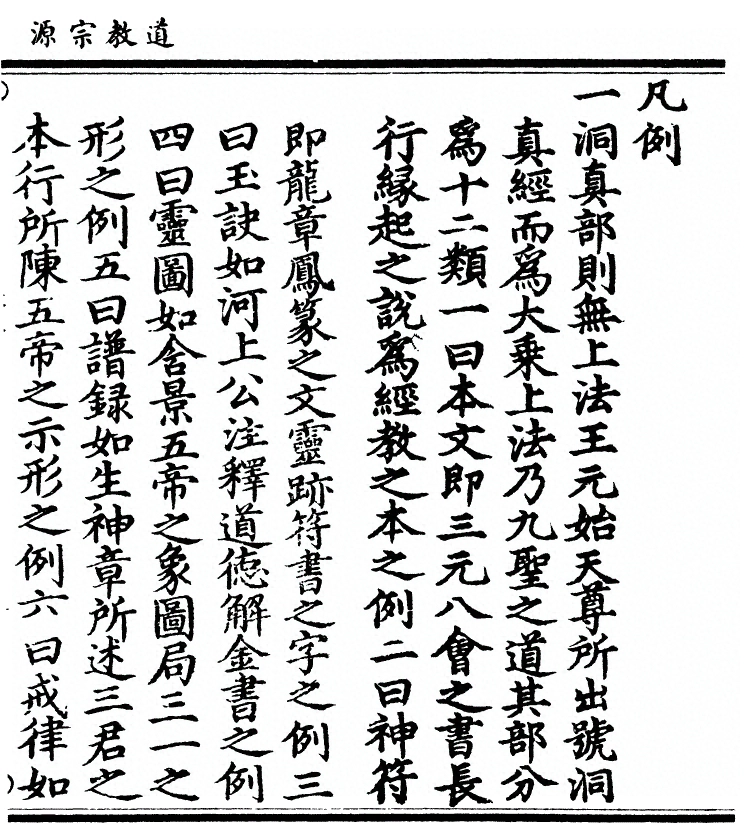 道教宗源
凡例
一洞真部則無上法王元始天尊所出號洞
真經而為大乗上法乃九聖之道其部分
為十二類一曰本文即三元八會之書長
行縁起之說為經教之本之例二曰神符
即龍章鳳篆之文靈跡符書之字之例三
曰玉訣如河上公注釋道徳解金書之例
四曰靈圖如含景五帝之象圖局三一之
形之例五曰譜録如生神章所述三君之
本行所陳五帝之示形之例六曰戒律如